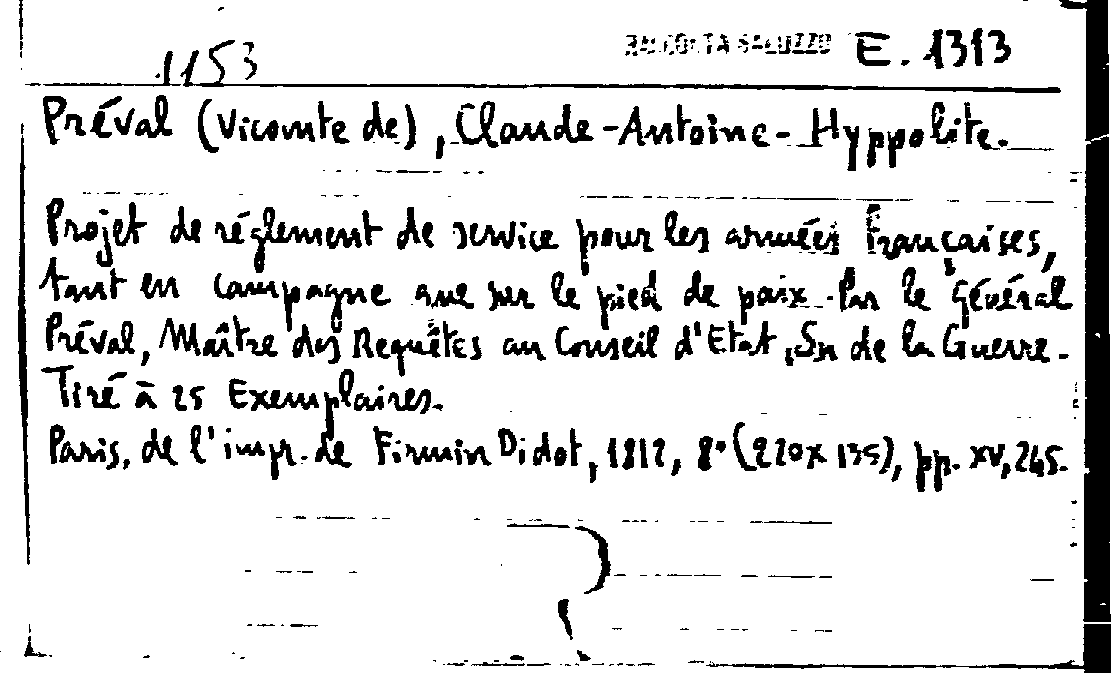 1153 RACCOLTA SALUZZO E. 1313
Préval (Vicomte de), Claude-Antoine-Hyppolite.
Projet de réglement de service pour les armées Françaises,
tant en campagne que sur le pied de paix. Par le Général
Préval, Maître des Requêtes au Conseil d'Etat, Sn de la Guerre.
Tiré à 25 Exemplaires.
Paris, de l'impr. de Firmin Didot, 1812, 8° (220x135), pp. XV, 245.